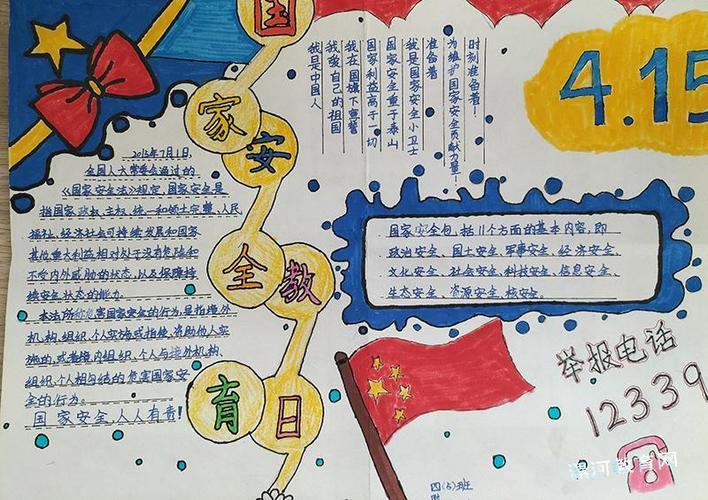 国
家
安
全
教
育
日
4.15
我是中国人
我爱自己的祖国
我在国旗下宣誓
国家利益高于一切
国家安全重于泰山
我是国家安全小卫士
准备着
为维护国家安全贡献力量！
时刻准备着！
2015年7月1日，
全国人大常委会通过的
《国家安全法》规定，国家安全是
指国家政权、主权、统一和领土完整、人民
福祉、经济社会可持续发展和国家
其他重大利益相对处于没有危险和
不受内外威胁的状态，以及保障持
续安全状态的能力。
本法所称危害国家安全的行为，是指境外
机构、组织、个人实施或指使、资助他人实
施的，或者境内组织、个人与境外机构、
组织、个人相勾结的危害国家安
全的行为。
国家安全，人人有责！
国家安全包括11个方面的基本内容，即
政治安全、国土安全、军事安全、经济安全、
文化安全、社会安全、科技安全、信息安全、
生态安全、资源安全、核安全
举报电话
12339
四(6)班
漯河教育网